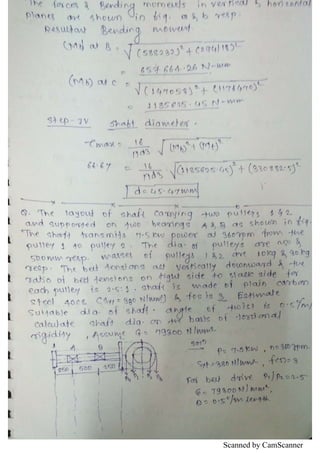 The forces & Bending moments in vertical & horizontal
planes are shown in fig. a & b resp.
Resultant Bending moment.
(Mb) at B = √(588232)² + (294118)²
= 657664.26 N-mm
(Mb) at c = √(147058)² + (1176470)²
= 1185625.45 N-mm
Step-IV Shaft diameter.
τmax = 16/πd³ √(Mb)² + (Mt)²
66.67 = 16/πd³ √(1185625.45)² + (330882.5)²
d = 45.47mm
Q. The layout of shaft carrying two pulleys 1 & 2
and supported on two bearings A & B as shown in fig.
The shaft transmits 7.5 kw power at 360rpm from the
pulley 1 to pulley 2. The dia. of pulleys are 250 &
500mm resp. masses of pulleys 1 & 2 are 10kg & 30kg
resp. The belt tensions act vertically downward & the
ratio of belt tensions on tight side to slack side for
each pulley is 2.5:1. Shaft is made of plain carbon
steel 40C8 (Syt = 380 N/mm²) & fos is 3. Estimate
suitable dia. of shaft. angle of twist is 0.5°/m
calculate shaft dia on the basis of torsional
rigidity. Assume G = 79300 N/mm².
1 A B 2
250 500 250
Solⁿ
P = 7.5kw, n = 360rpm
Syt = 380 N/mm², f(s) = 3
For belt drive P1/P2 = 2.5
G = 79300 N/mm²
θ = 0.5°/m length
Scanned by CamScanner